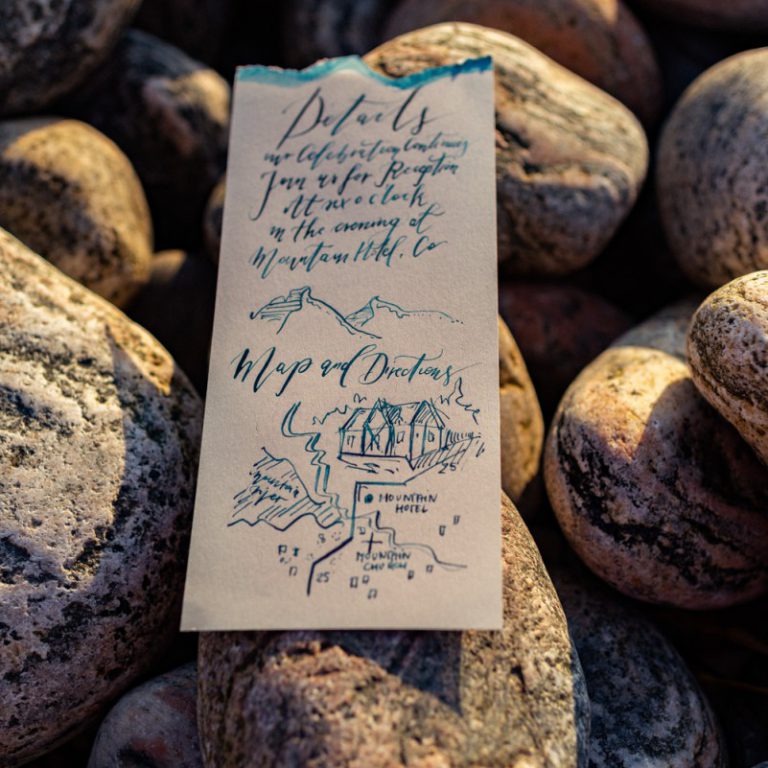 Details
our Celebration Continues
Join us for Reception
At six o clock
in the evening at
Mountain Hotel, Co
Map and Directions
25
Mountain
MOUNTAIN
HOTEL
MOUNTAIN
CHURCH
25